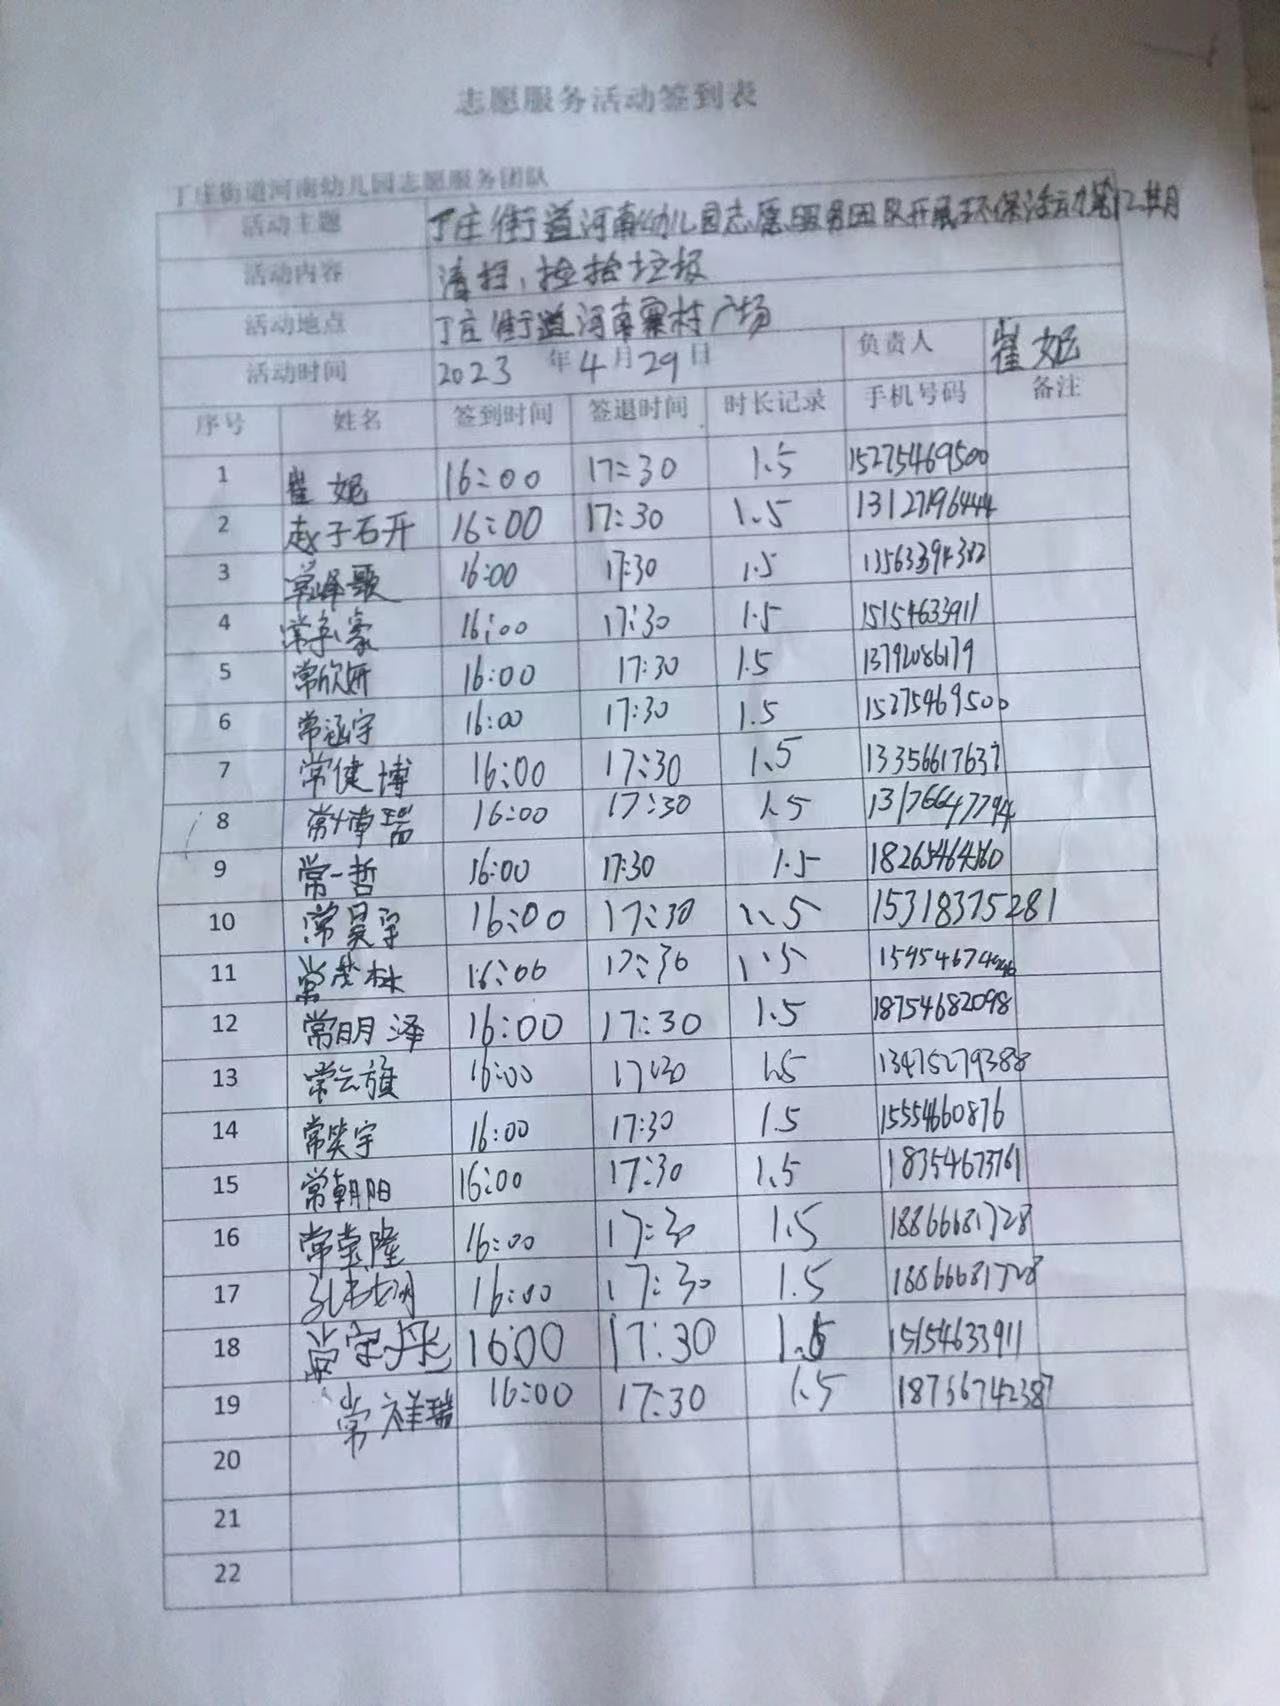 志愿服务活动签到表
丁庄街道河南幼儿园志愿服务团队
活动主题 丁庄街道河南幼儿园志愿服务团队开展环保活动第12期
活动内容 清扫,捡拾垃圾
活动地点 丁庄街道河南寨村广场
活动时间 2023年4月29日 负责人 崔妮
序号 姓名 签到时间 签退时间 时长记录 手机号码 备注
1 崔妮 16:00 17:30 1.5 15275469500
2 赵子石开 16:00 17:30 1.5 13127196444
3 常峰歌 16:00 17:30 1.5 13563394382
4 常 16:00 17:30 1.5 15154633911
5 常欣妍 16:00 17:30 1.5 13792086179
6 常涵宇 16:00 17:30 1.5 15275469500
7 常健博 16:00 17:30 1.5 13356617637
8 常博瑞 16:00 17:30 1.5 13176647794
9 常一哲 16:00 17:30 1.5
10 常昊宇 16:00 17:30 1.5 15318375281
11 常茂林 16:00 17:30 1.5
12 常明泽 16:00 17:30 1.5 18754682098
13 常云旗 16:00 17:30 1.5 13475279388
14 常笑宇 16:00 17:30 1.5 15554660876
15 常朝阳 16:00 17:30 1.5 18354673761
16 常崇隆 16:00 17:30 1.5 18866681728
17 16:00 17:30 1.5 18866681728
18 常宇彤 16:00 17:30 1.5 15154633911
19 常祥瑞 16:00 17:30 1.5 18756742387
20
21
22